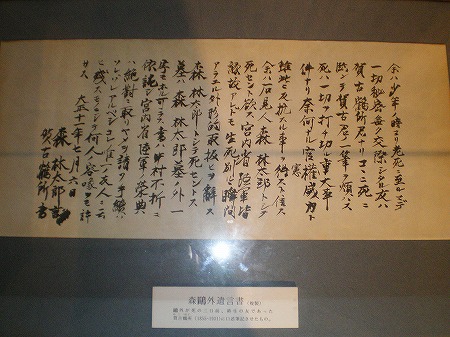 余ハ少年ノ時ヨリ老死ニ至ルマデ
一切秘密無ク交際シタル友ハ
賀古鶴所君ナリコヽニ死ニ
臨ンテ賀古君ノ一筆ヲ煩ハス
死ハ一切ヲ打チ切ル重大事
件ナリ奈何ナル官権威力ト
雖此ニ反抗スル事ヲ得スト信ス
余ハ石見人森林太郎トシテ
死セント欲ス宮内省陸軍皆
縁故アレドモ生死別ルヽ瞬間
アラユル外形的取扱ヒヲ辭ス
森林太郎トシテ死セントス
墓ハ森林太郎墓ノ外一
字モホル可ラス書ハ中村不折ニ
依託シ宮内省陸軍ノ榮典
ハ絶對ニ取リヤメヲ請フ手續ハ
ソレゾレアルベシコレ唯一ノ友人ニ云ヒ
残スモノニシテ何人ノ容喙ヲモ許
サス
大正十一年七月六日
森林太郎言
賀古鶴所書
森鷗外遺言書（複製）
鷗外が死の三日前、終生の友であった
賀古鶴所に口述筆記させたもの。